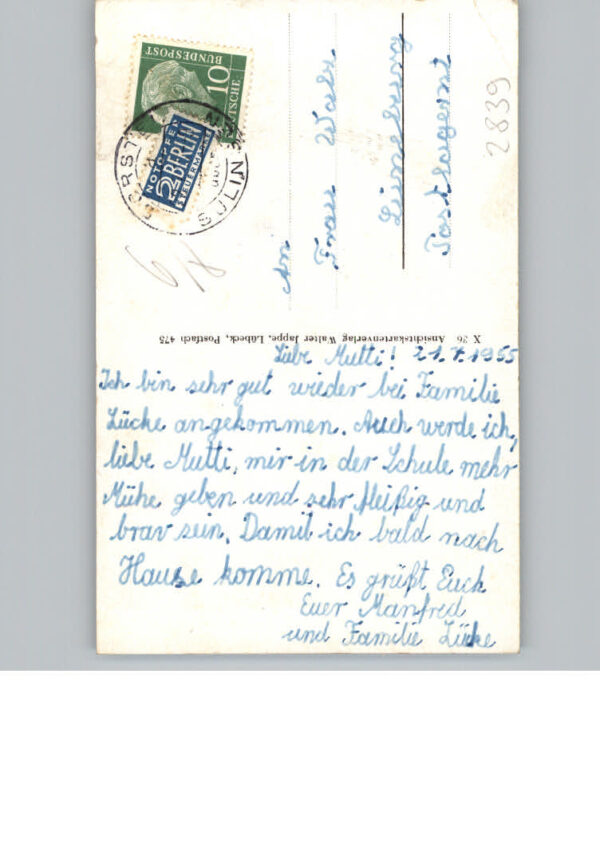 DEUTSCHE
BUNDESPOST
10
NOTOPFER
2 BERLIN
STEUERMARKE
SULIN
An
Frau
Lüneburg
Postlagernd
2839
X 36 Ansichtskartenverlag Walter Jappe, Lübeck, Postfach 475
Liebe Mutti! 21.7.1955
Ich bin sehr gut wieder bei Familie
Lücke angekommen. Auch werde ich,
liebe Mutti, mir in der Schule mehr
Mühe geben und sehr fleißig und
brav sein. Damit ich bald nach
Hause komme. Es grüßt Euch
Euer Manfred
und Familie Lücke